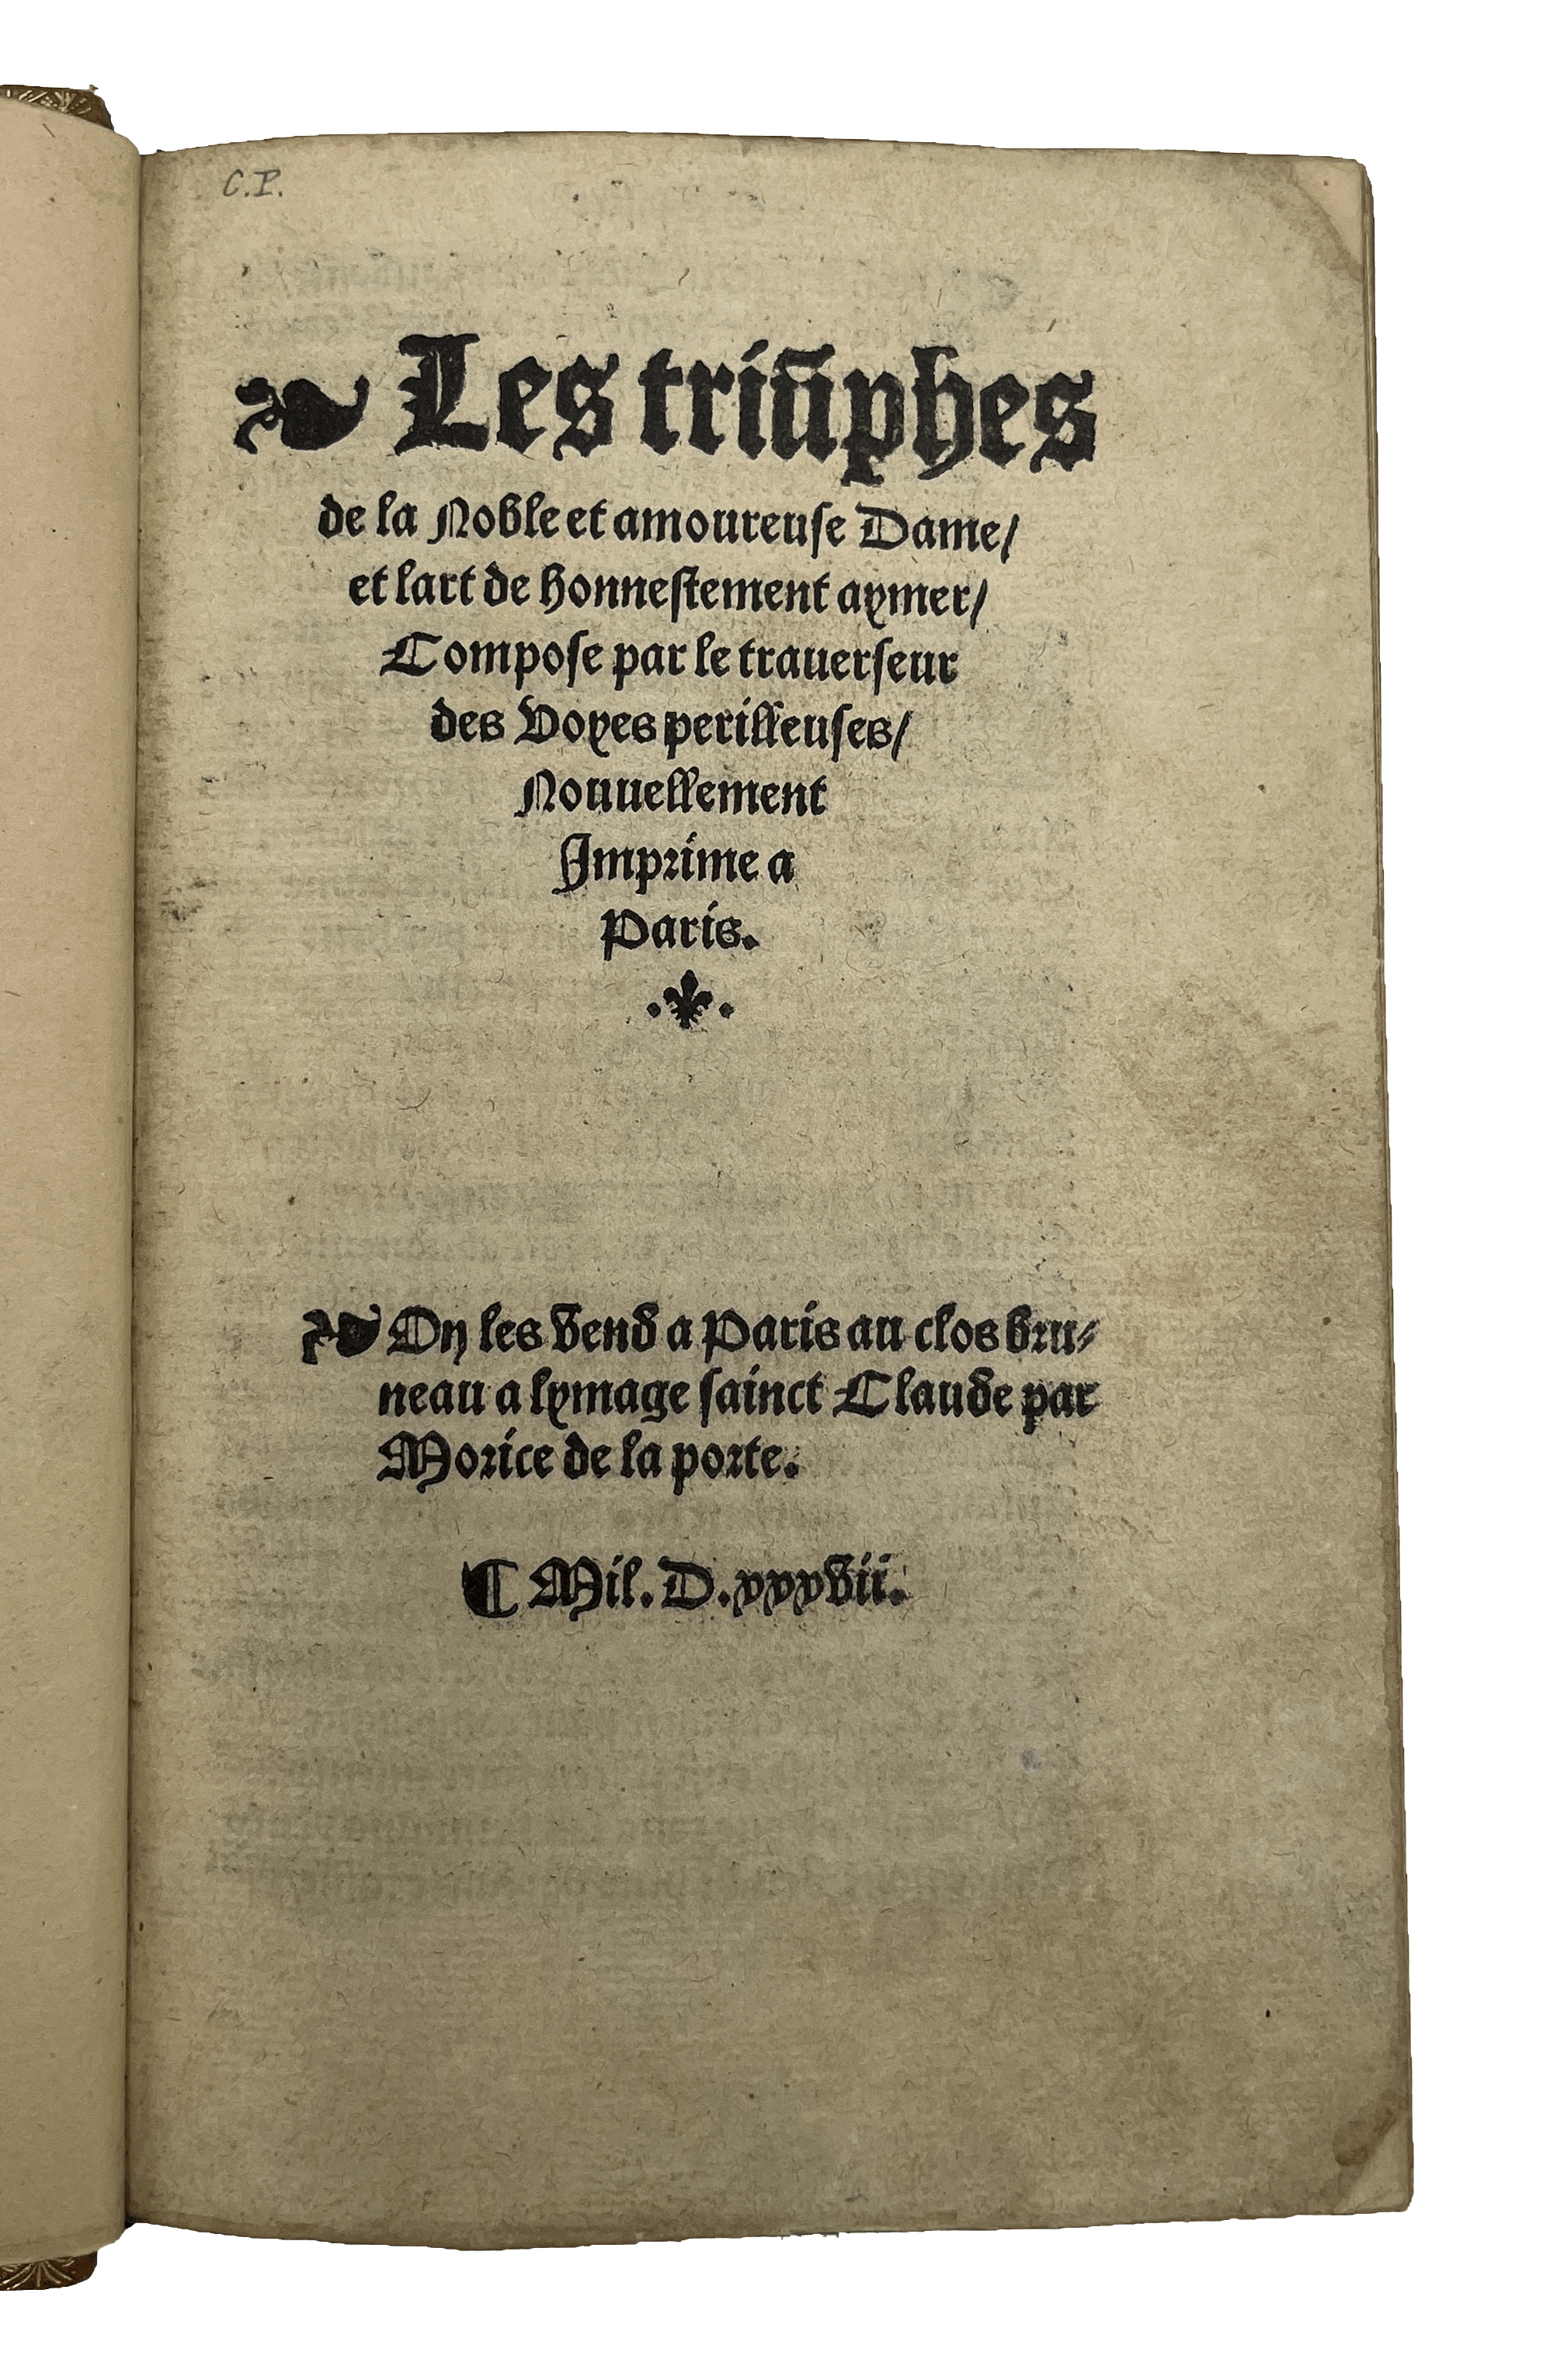 C.P.
❧ Les triūphes
de la Noble et amoureuse Dame/
et lart de honnestement aymer/
Compose par le trauerseur
des Voyes perilleuses/
Nouuellement
Imprime a
Paris.
❧ On les vend a Paris au clos bru⸗
neau a lymage sainct Claude par
Morice de la porte.
¶ Mil. D. xxxvii.